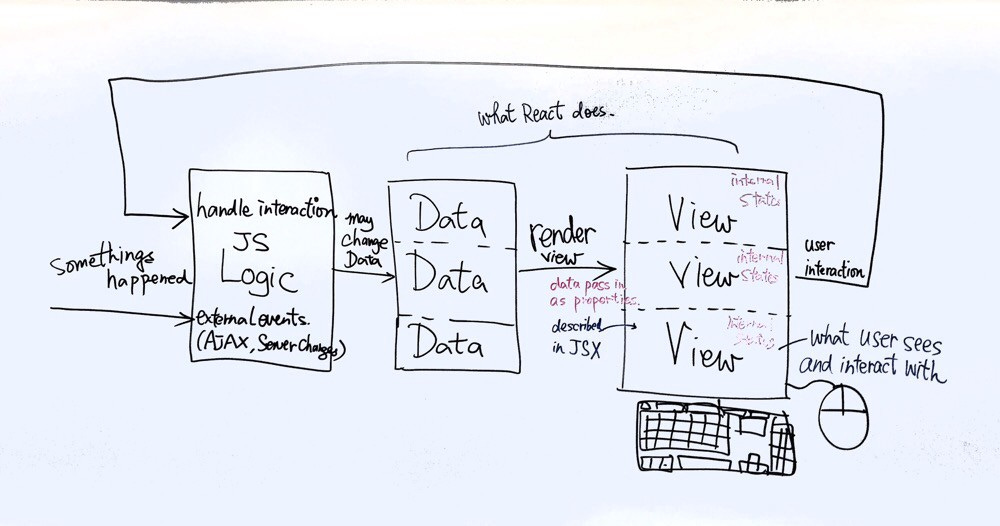 what React does.
handle interaction
JS
Logic
external events.
(AJAX, Server Changes)
Somethings
happened
may
change
Data
Data
Data
Data
render
view
data pass in
as properties.
described
in JSX
View
internal
States
View
internal
States
View
Internal
user
interaction
what user sees
and interact with